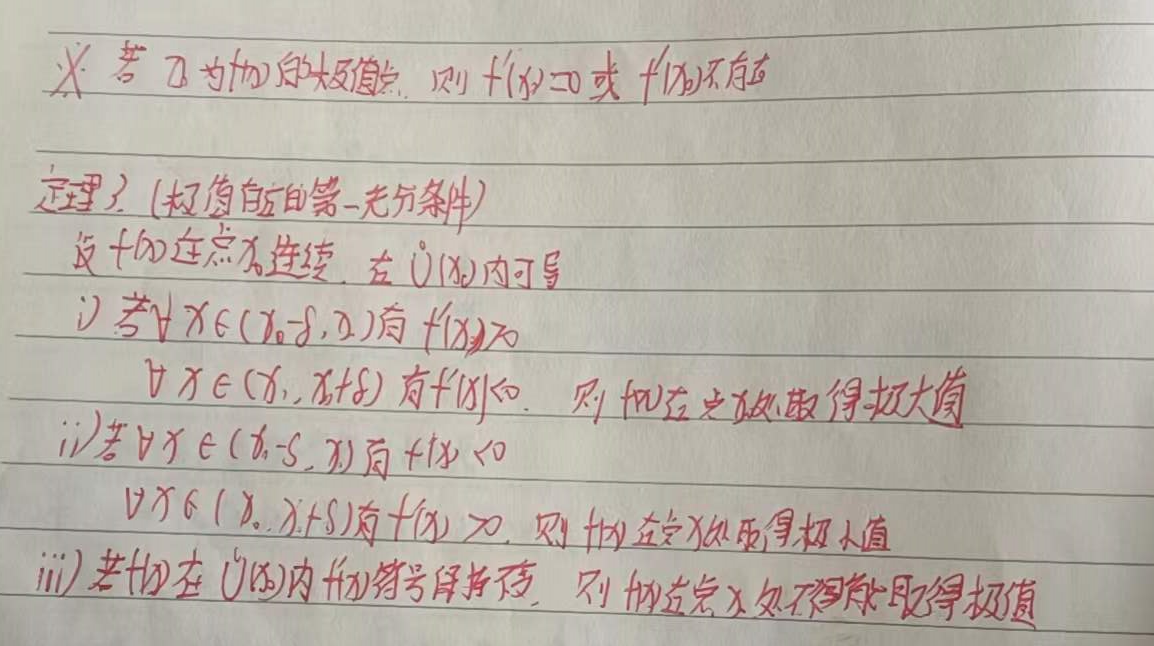 ※ 若 x₀ 为f(x)的极值点, 则 f'(x₀)=0 或 f'(x₀)不存在
定理3. (极值存在的第一充分条件)
设 f(x)在点x₀连续, 在 Ů(x₀)内可导
i) 若∀ x∈(x₀-δ, x₀)有 f'(x)>0
∀ x∈(x₀, x₀+δ) 有f'(x)<0. 则 f(x)在点x₀处取得极大值
ii) 若∀x∈(x₀-δ, x₀)有 f'(x)<0
∀x∈(x₀, x₀+δ)有f'(x)>0, 则 f(x)在点x₀处取得极小值
iii) 若f(x)在 Ů(x₀)内 f'(x)符号保持不变, 则 f(x)在点x₀处不能取得极值